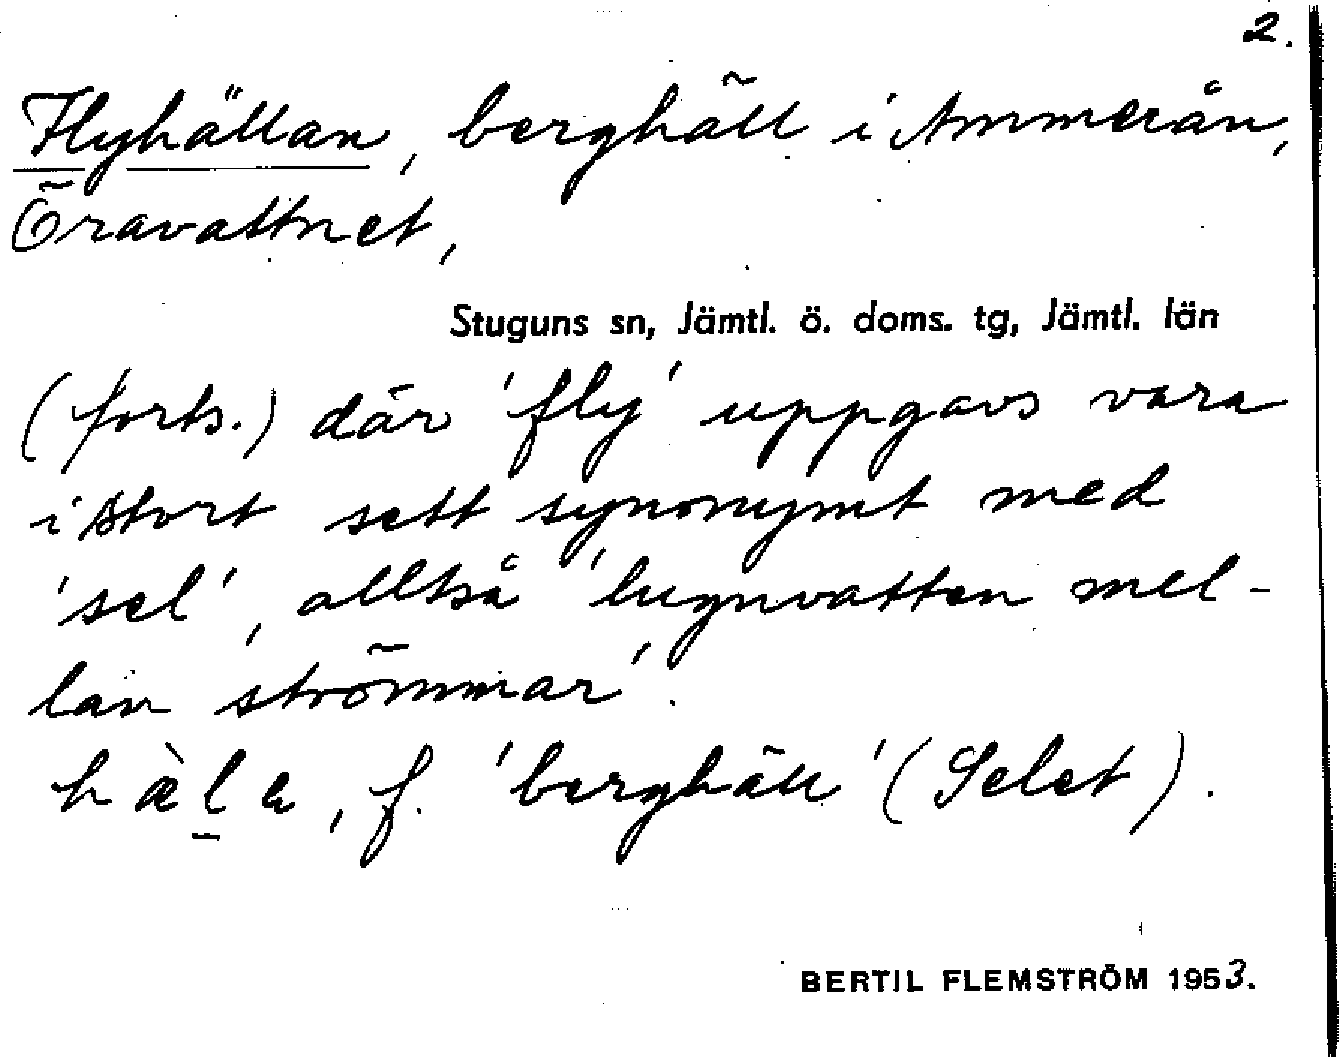 2.
Flyhällan, berghäll i Ammerån,
Öravattnet,
Stuguns sn, Jämtl. ö. doms. tg, Jämtl. län
(forts.) där 'fly' uppgavs vara
i stort sett synonymt med
'sel', alltså 'lugnvatten mel-
lan strömmar'.
hæ̀l̲a, f. 'berghäll' (Selet).
BERTIL FLEMSTRÖM 1953.